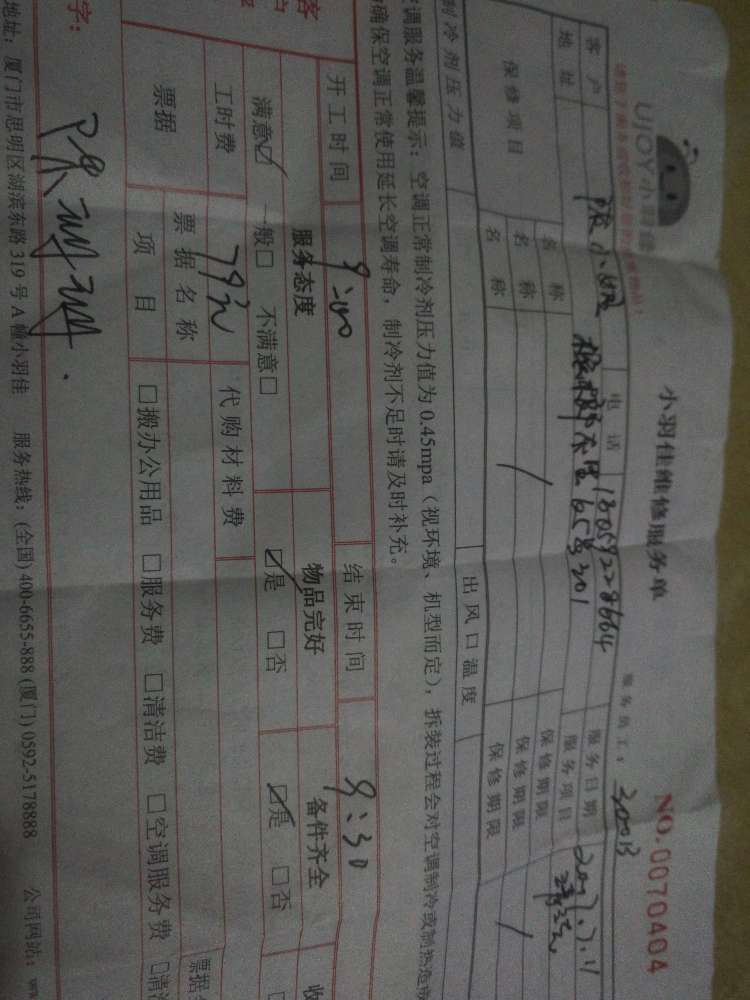 UJOY小羽佳
小羽佳维修服务单
NO.0070404
服务员工: 30013
客户 陈小姐 电话 18059228664 服务日期 2017.7.11
地址 65号301 服务项目 清洗
保修项目 名称 保修期限
名称 / 保修期限 /
名称 保修期限
制冷剂压力值 出风口温度
调服务温馨提示:空调正常制冷剂压力值为0.45mpa(视环境、机型而定),拆装过程会对空调制冷或制热造成
确保空调正常使用延长空调寿命,制冷剂不足时请及时补充。
开工时间 9:00 结束时间 9:30
服务态度 物品完好 备件齐全
满意☑ 一般□ 不满意□ ☑是 □否 ☑是 □否
工时费 79元 代购材料费
票据 票据名称
项目 □搬办公用品 □服务费 □清洁费 □空调服务费
字:
地址:厦门市思明区湖滨东路319号A幢小羽佳 服务热线:(全国)400-6655-888(厦门)0592-5178888 公司网站: